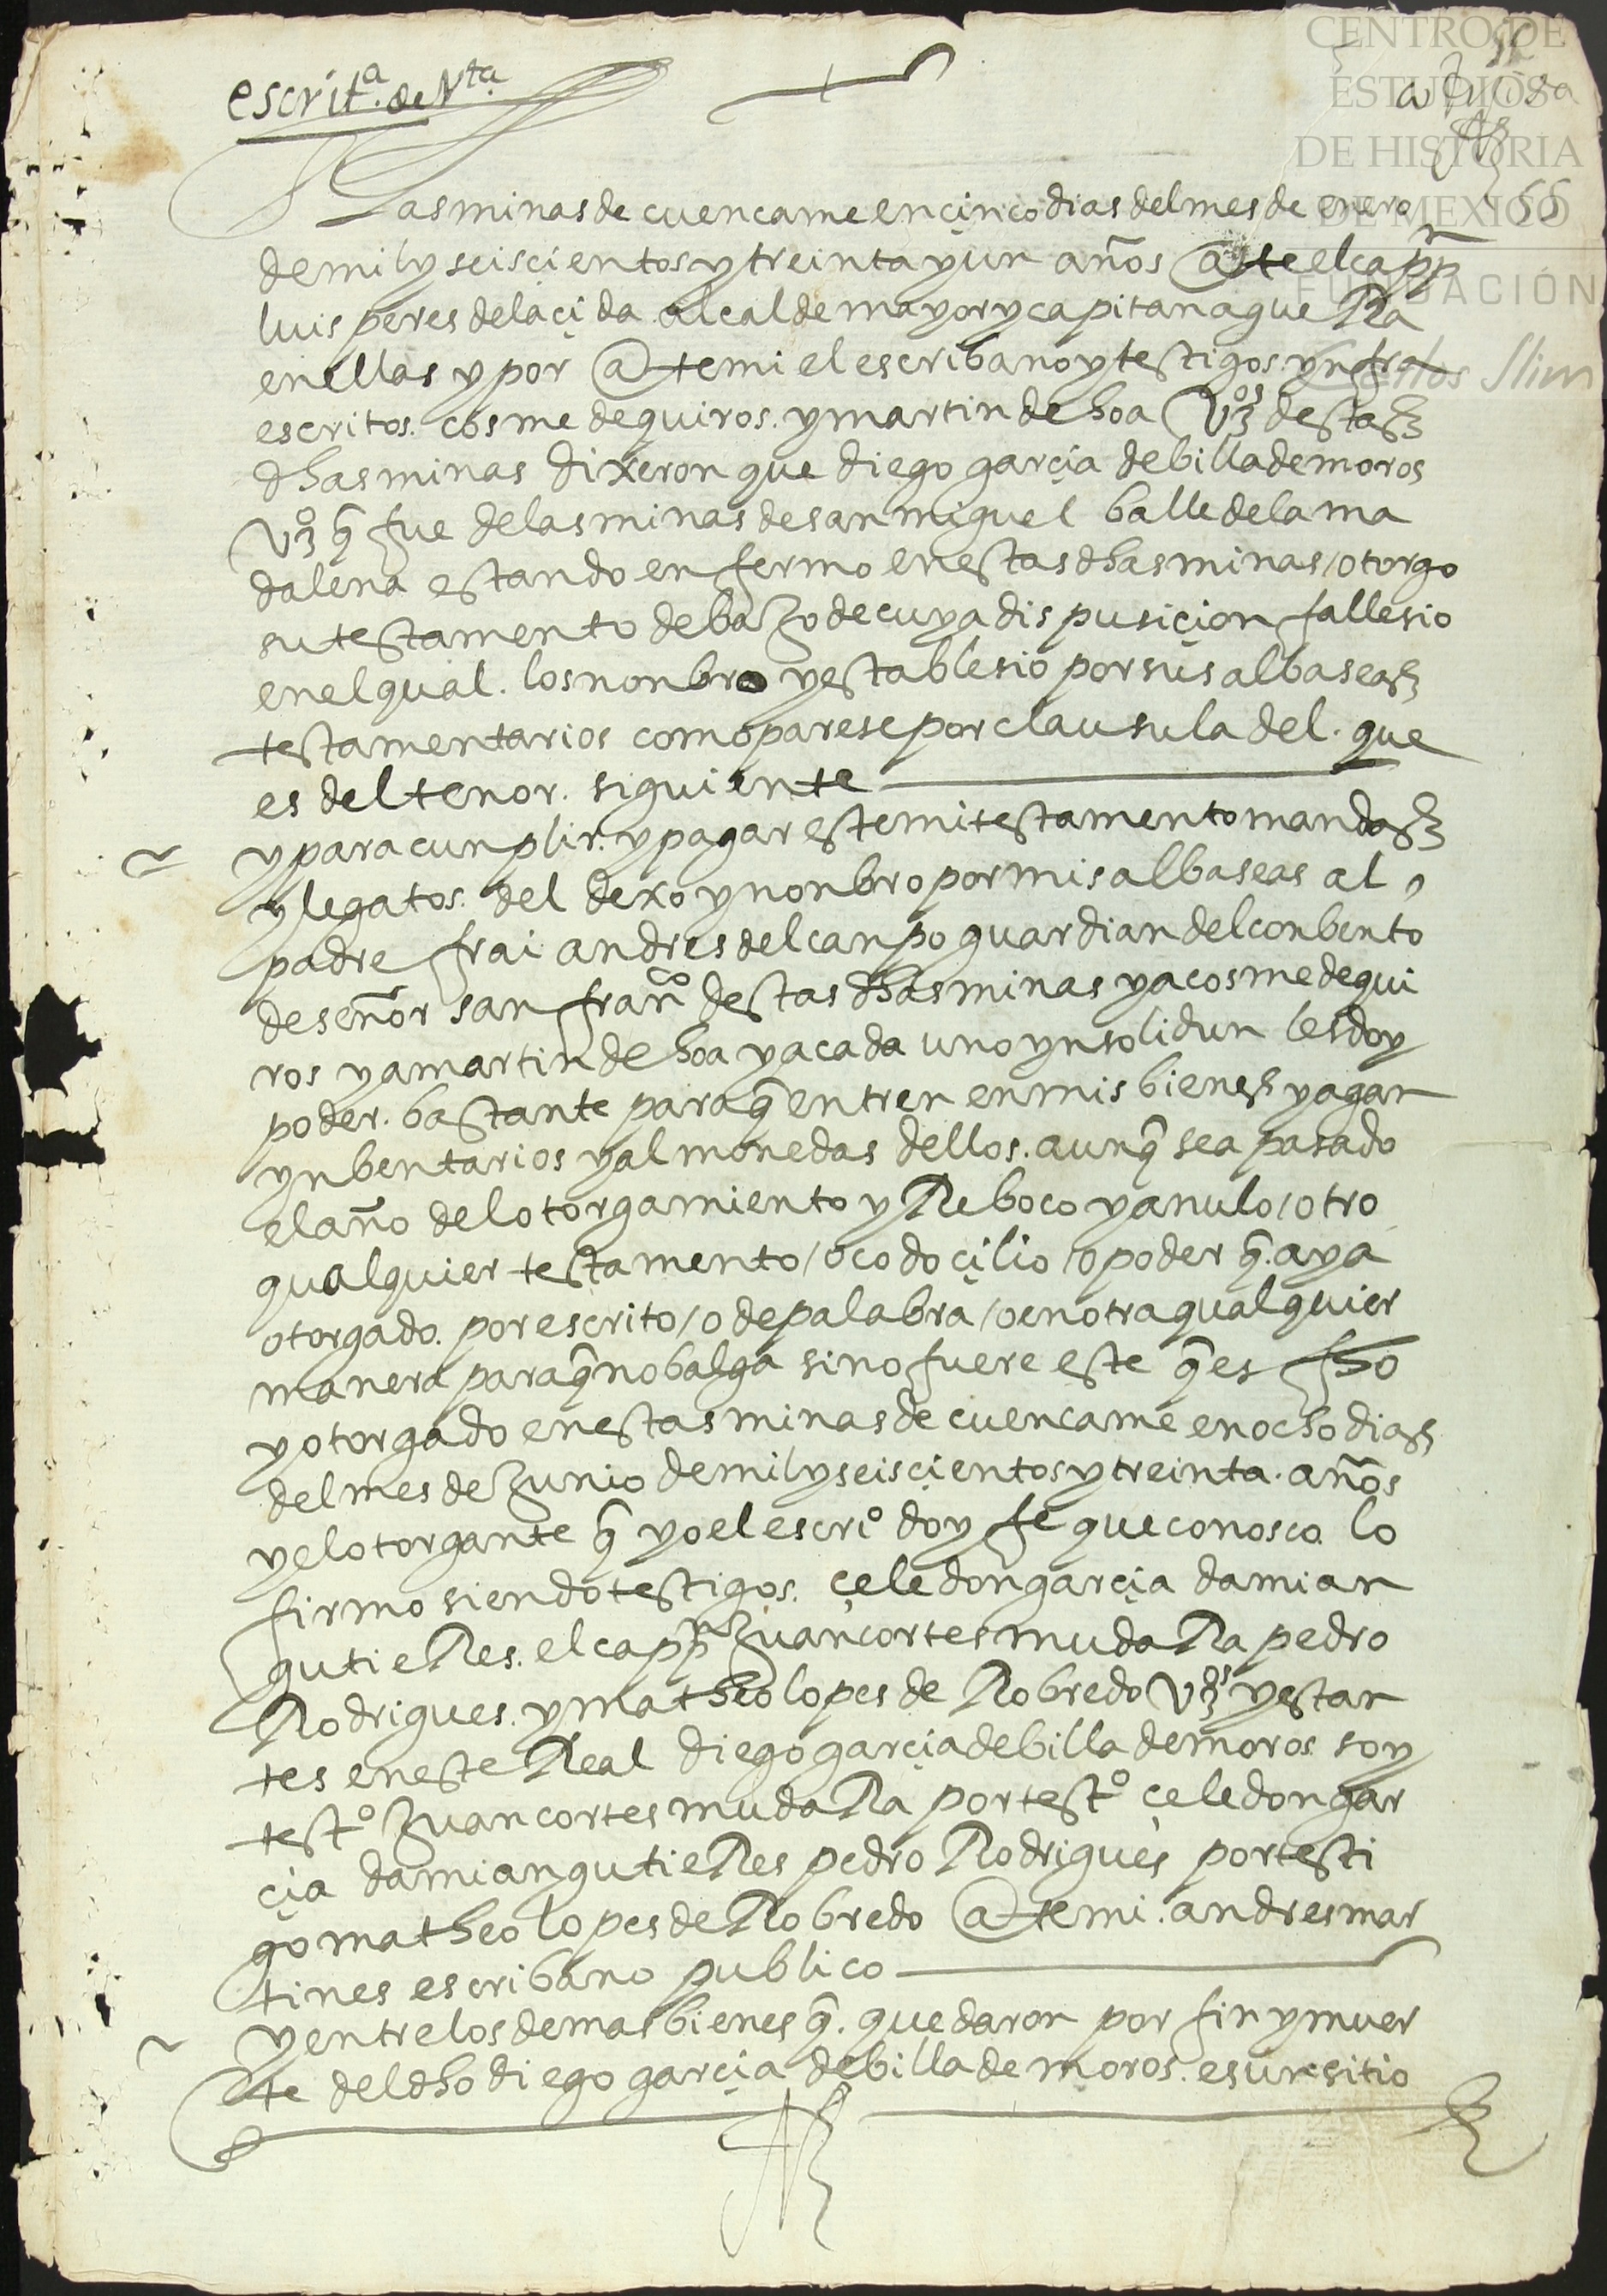 escrit.ª de Vta
CENTRO DE
ESTUDIOS
DE HISTORIA
DE MEXICO
FUNDACIÓN
Carlos Slim
55
Las minas de cuencame en çinco dias del mes de enero
de mil y seiscientos y treinta y un años ante el capp.n
luis peres de la çi da alcalde mayor y capitan a gueRa
en ellas y por ante mi el escribano y testigos ynfra
escritos. cosme de quiros. y martin de hoa Vºs destas
dhas minas dixeron que diego garçia de billa de moros
Vº q̃ fue de las minas de san miguel balle de la ma
dalena estando enfermo en estas dhas minas / otorgo
su testamento debaxo de cuya dispusiçion fallesio
en el qual. los nonbro y establesio por sus albaseas
testamentarios como parese por clausula del. que
es del tenor. siguiente
y para cunplir. y pagar este mi testamento mandas
y legatos. del dexo y nonbro por mis albaseas al
padre frai andres del canpo guardian del conbento
de señor san franco destas dhas minas y a cosme de qui
ros y a martin de hoa y a cada uno ynsolidun les doy
poder. bastante para q̃ entren en mis bienes y agan
ynbentarios y almonedas dellos. aunq̃ sea pasado
el año del otorgamiento y Reboco y anulo / otro
qualquier testamento / o codoçilio / o poder q̃. aya
otorgado. por escrito / o de palabra / o en otra qualquier
manera para q̃ no balga sino fuere este q̃ es fho
y otorgado en estas minas de cuencame en ocho dias
del mes de Junio de mil y seisçientos y treinta. años
y el otorgante q̃ yo el escriº doy fe que conosco lo
firmo siendo testigos. çeledon garçia damian
gutieRes. el capp.n Juan cortes mudaRa pedro
Rodrigues. y matheo lopes de Robredo Vºs y estan
tes en este Real diego garçia de billa de moros soy
testº Juan cortes mudaRa por testº çeledon gar
çia damian gutieRes pedro Rodrigues por testi
go matheo lopes de Robredo ante mi. andres mar
tines escribano publico
y entre los demas bienes q̃. quedaron por fin y muer
te del dho diego garçia de billa de moros. es un sitio